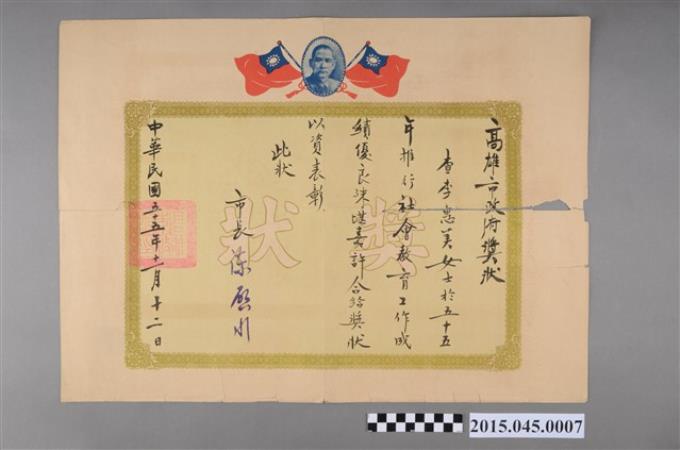 高雄市政府獎狀
查李惠美女士於五十五
年推行社會教育工作成
績優良殊堪嘉許合給獎狀
以資表彰
此狀
市長 陳啟川
中華民國五十五年十一月十二日
獎狀
2015.045.0007